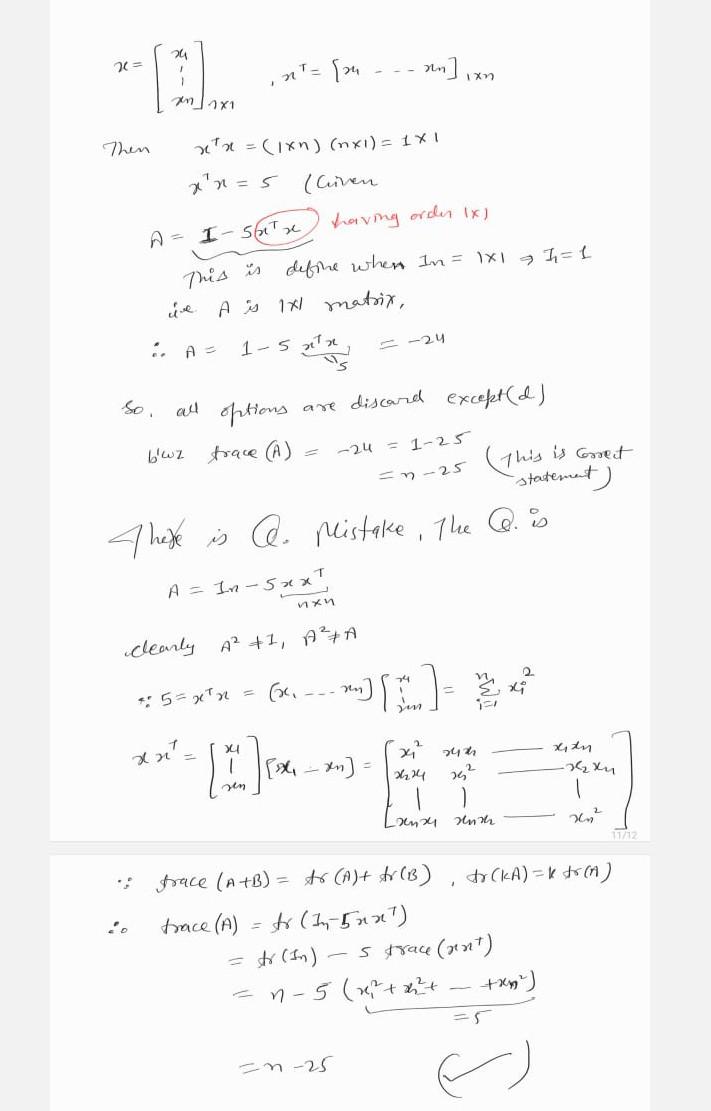 x = [x₁ ¦ xn] n×1 , xᵀ = [x₁ - - - xn] 1×n
Then xᵀx = (1×n) (n×1) = 1×1
xᵀx = 5 (Given
A = I - 5xᵀx having order 1×1
This is define when In = 1×1 ⇒ I₁ = 1
i.e A is 1×1 matrix,
∴ A = 1 - 5 xᵀx = -24
5
So, all options are discard except (d)
b'coz trace (A) = -24 = 1-25
= n-25 (This is correct statement)
There is Q. Mistake, The Q. is
A = In - 5xxᵀ
n×n
clearly A² ≠ I, A² ≠ A
∵ 5 = xᵀx = [x₁ - - - xn] [x₁ ¦ xn] = Σ i=1 n xi²
x xᵀ = [x₁ | xn] [x₁ - xn] = [x₁² x₁x₂ — x₁xn
x₂x₁ x₂² — x₂xn
| | |
xnx₁ xnx₂ — xn²]
11/12
∵ trace (A+B) = tr(A) + tr(B) , tr(kA) = k tr(A)
∴ trace (A) = tr (In - 5xxᵀ)
= tr (In) - 5 trace (xxᵀ)
= n - 5 (x₁² + x₂² + — + xn²)
= 5
= n - 25